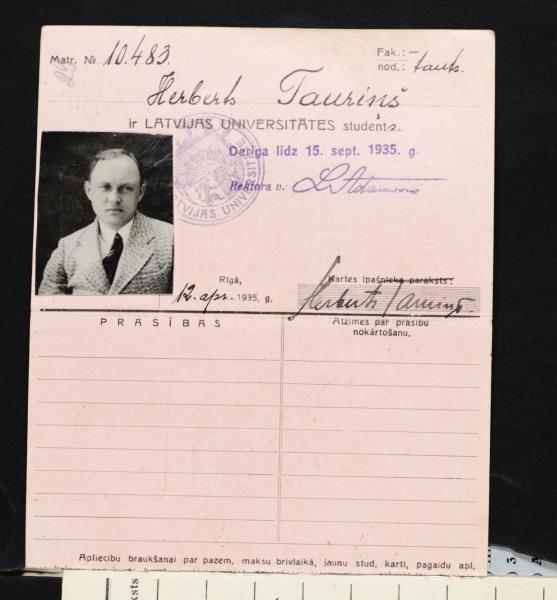 Matr. № 10.483.
Fak.: -
nod.: tauts.
Herberts Tauriņš
ir LATVIJAS UNIVERSITĀTES students.
Derīga līdz 15. sept. 1935. g.
Rektora v. L. Adamovičs
LATVIJAS UNIVERSITĀTE
Rīgā,
12. apr. 1935. g.
Kartes īpašnieka paraksts:
Herberts Tauriņš.
PRASĪBAS
Atzīmes par prasību
nokārtošanu.
Apliecību braukšanai par pazem. maksu brīvlaikā, jaunu stud. karti, pagaidu apl.